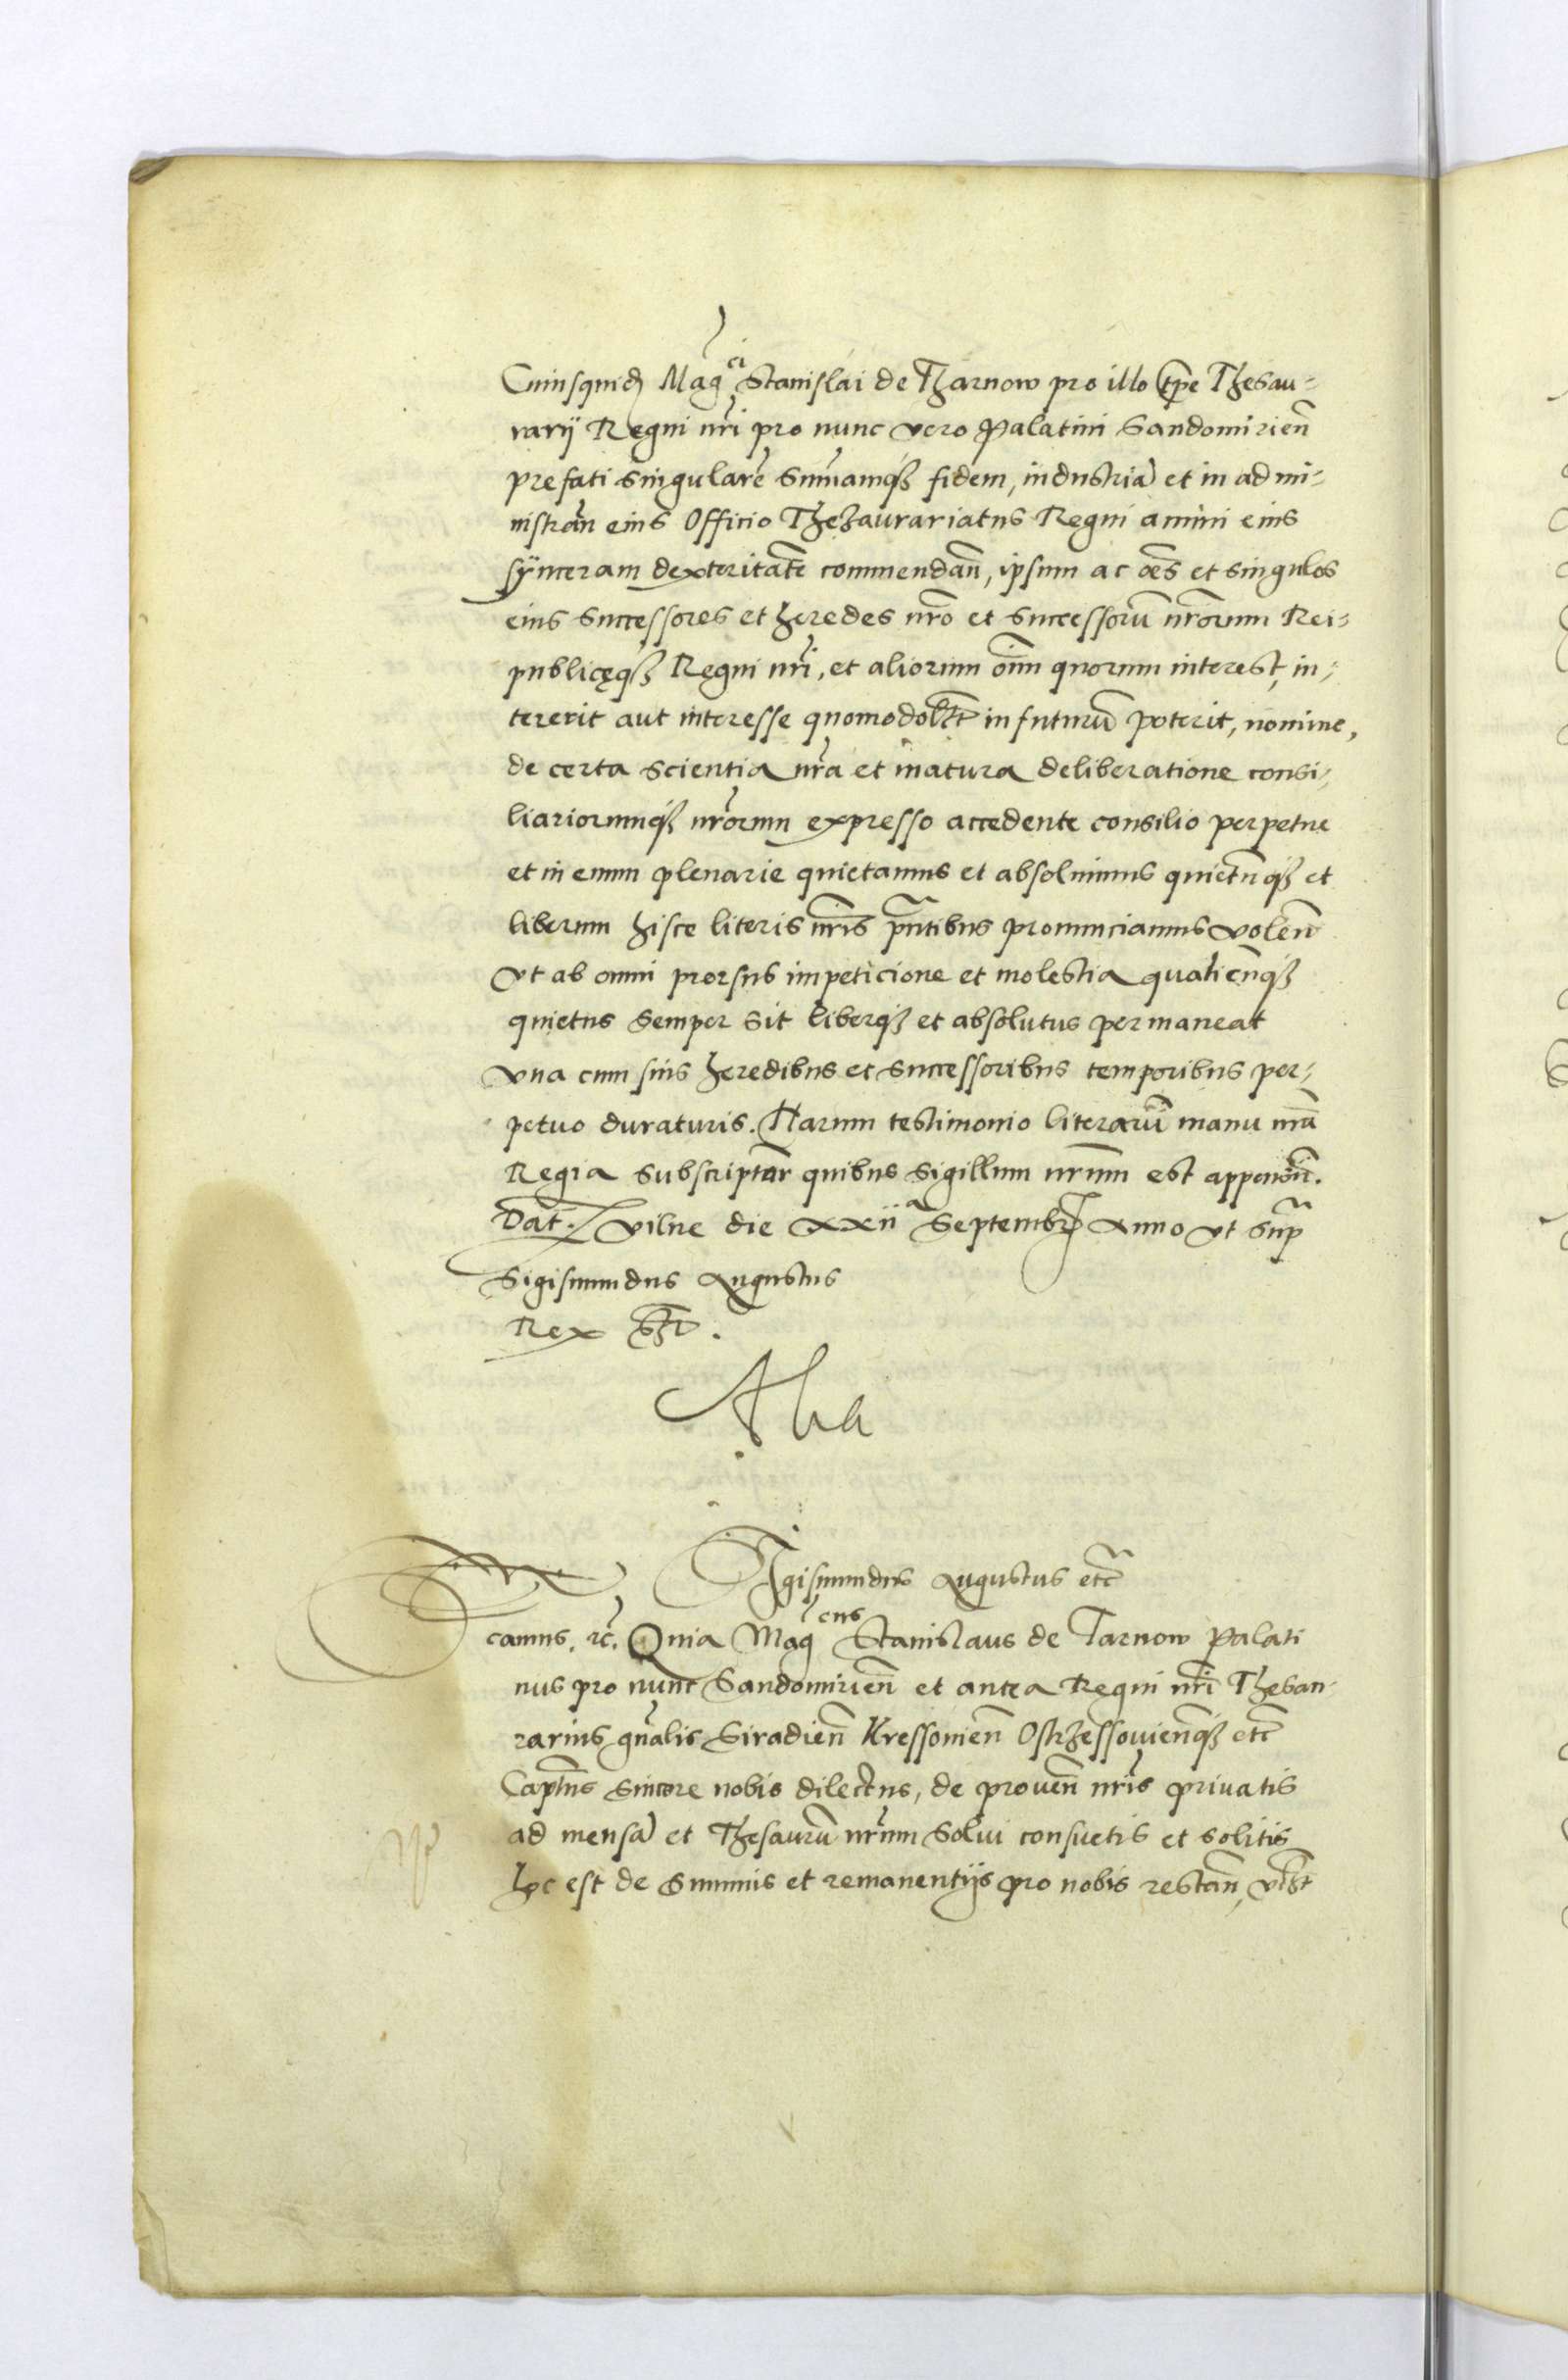 Cuiusquid Mag̃ci Stanislai de Tharnow pro illo tp̃e Thesau-
rarij Regni nr̃i pro nunc vero Palatini Sandomirien̄
prefati singularē sum̄amq₃ fidem, industriā et in admi-
nistran̄ eius Officio Thezaurariatus Regni animi eius
sÿnceram dexteritatē commendan̄, ipsum ac om̄es et singulos
eius successores et heredes nr̃o et successorū nr̃orum Rei-
publicęq₃ Regni nr̃i, et aliorum oīm quorum interest, in-
tererit aut interesse quomodolt̄ in futurū poterit, nomine,
de certa scientia nr̃a et matura deliberatione consi-
liariorumq₃ nr̃orum expresso accedente consilio perpetue
et in euum plenarie quietamus et absoluimus quietūq₃ et
liberum hisce literis nr̃is pn̄tibus pronunciamus volen̄
vt ab omni prorsus impeticione et molestia qualicunq₃
quietus semper sit liberq₃ et absolutus permaneat
vna cum suis heredibus et successoribus temporibus per-
petuo duraturis. Harum testimonio literarū manu nr̃a
Regia subscriptar̄ quibus sigillum nr̃um est appensū.
Dat. Vilne die xxiia Septembr̄ Anno vt sup̄
Sigismundus Augustus
Rex sst.
Sigismundus Augustus etc̄
camus. ꝛc̄. Quia Mag̃cus Stanislaus de Tarnow Palati
nus pro nunc Sandomirien̄ et antea Regni nr̃i Thesau-
rarius gn̄alis Siradien̄ Kressouien̄ Ostrzessouien̄q₃ etc̄
Capt̄ns sincere nobis dilectus, de prouen̄ nr̃is priuatis
ad mensā et Thesaurū nr̃um solui consuetis et solitis
hoc est de summis et remanentijs pro nobis restan̄, vt̄zt